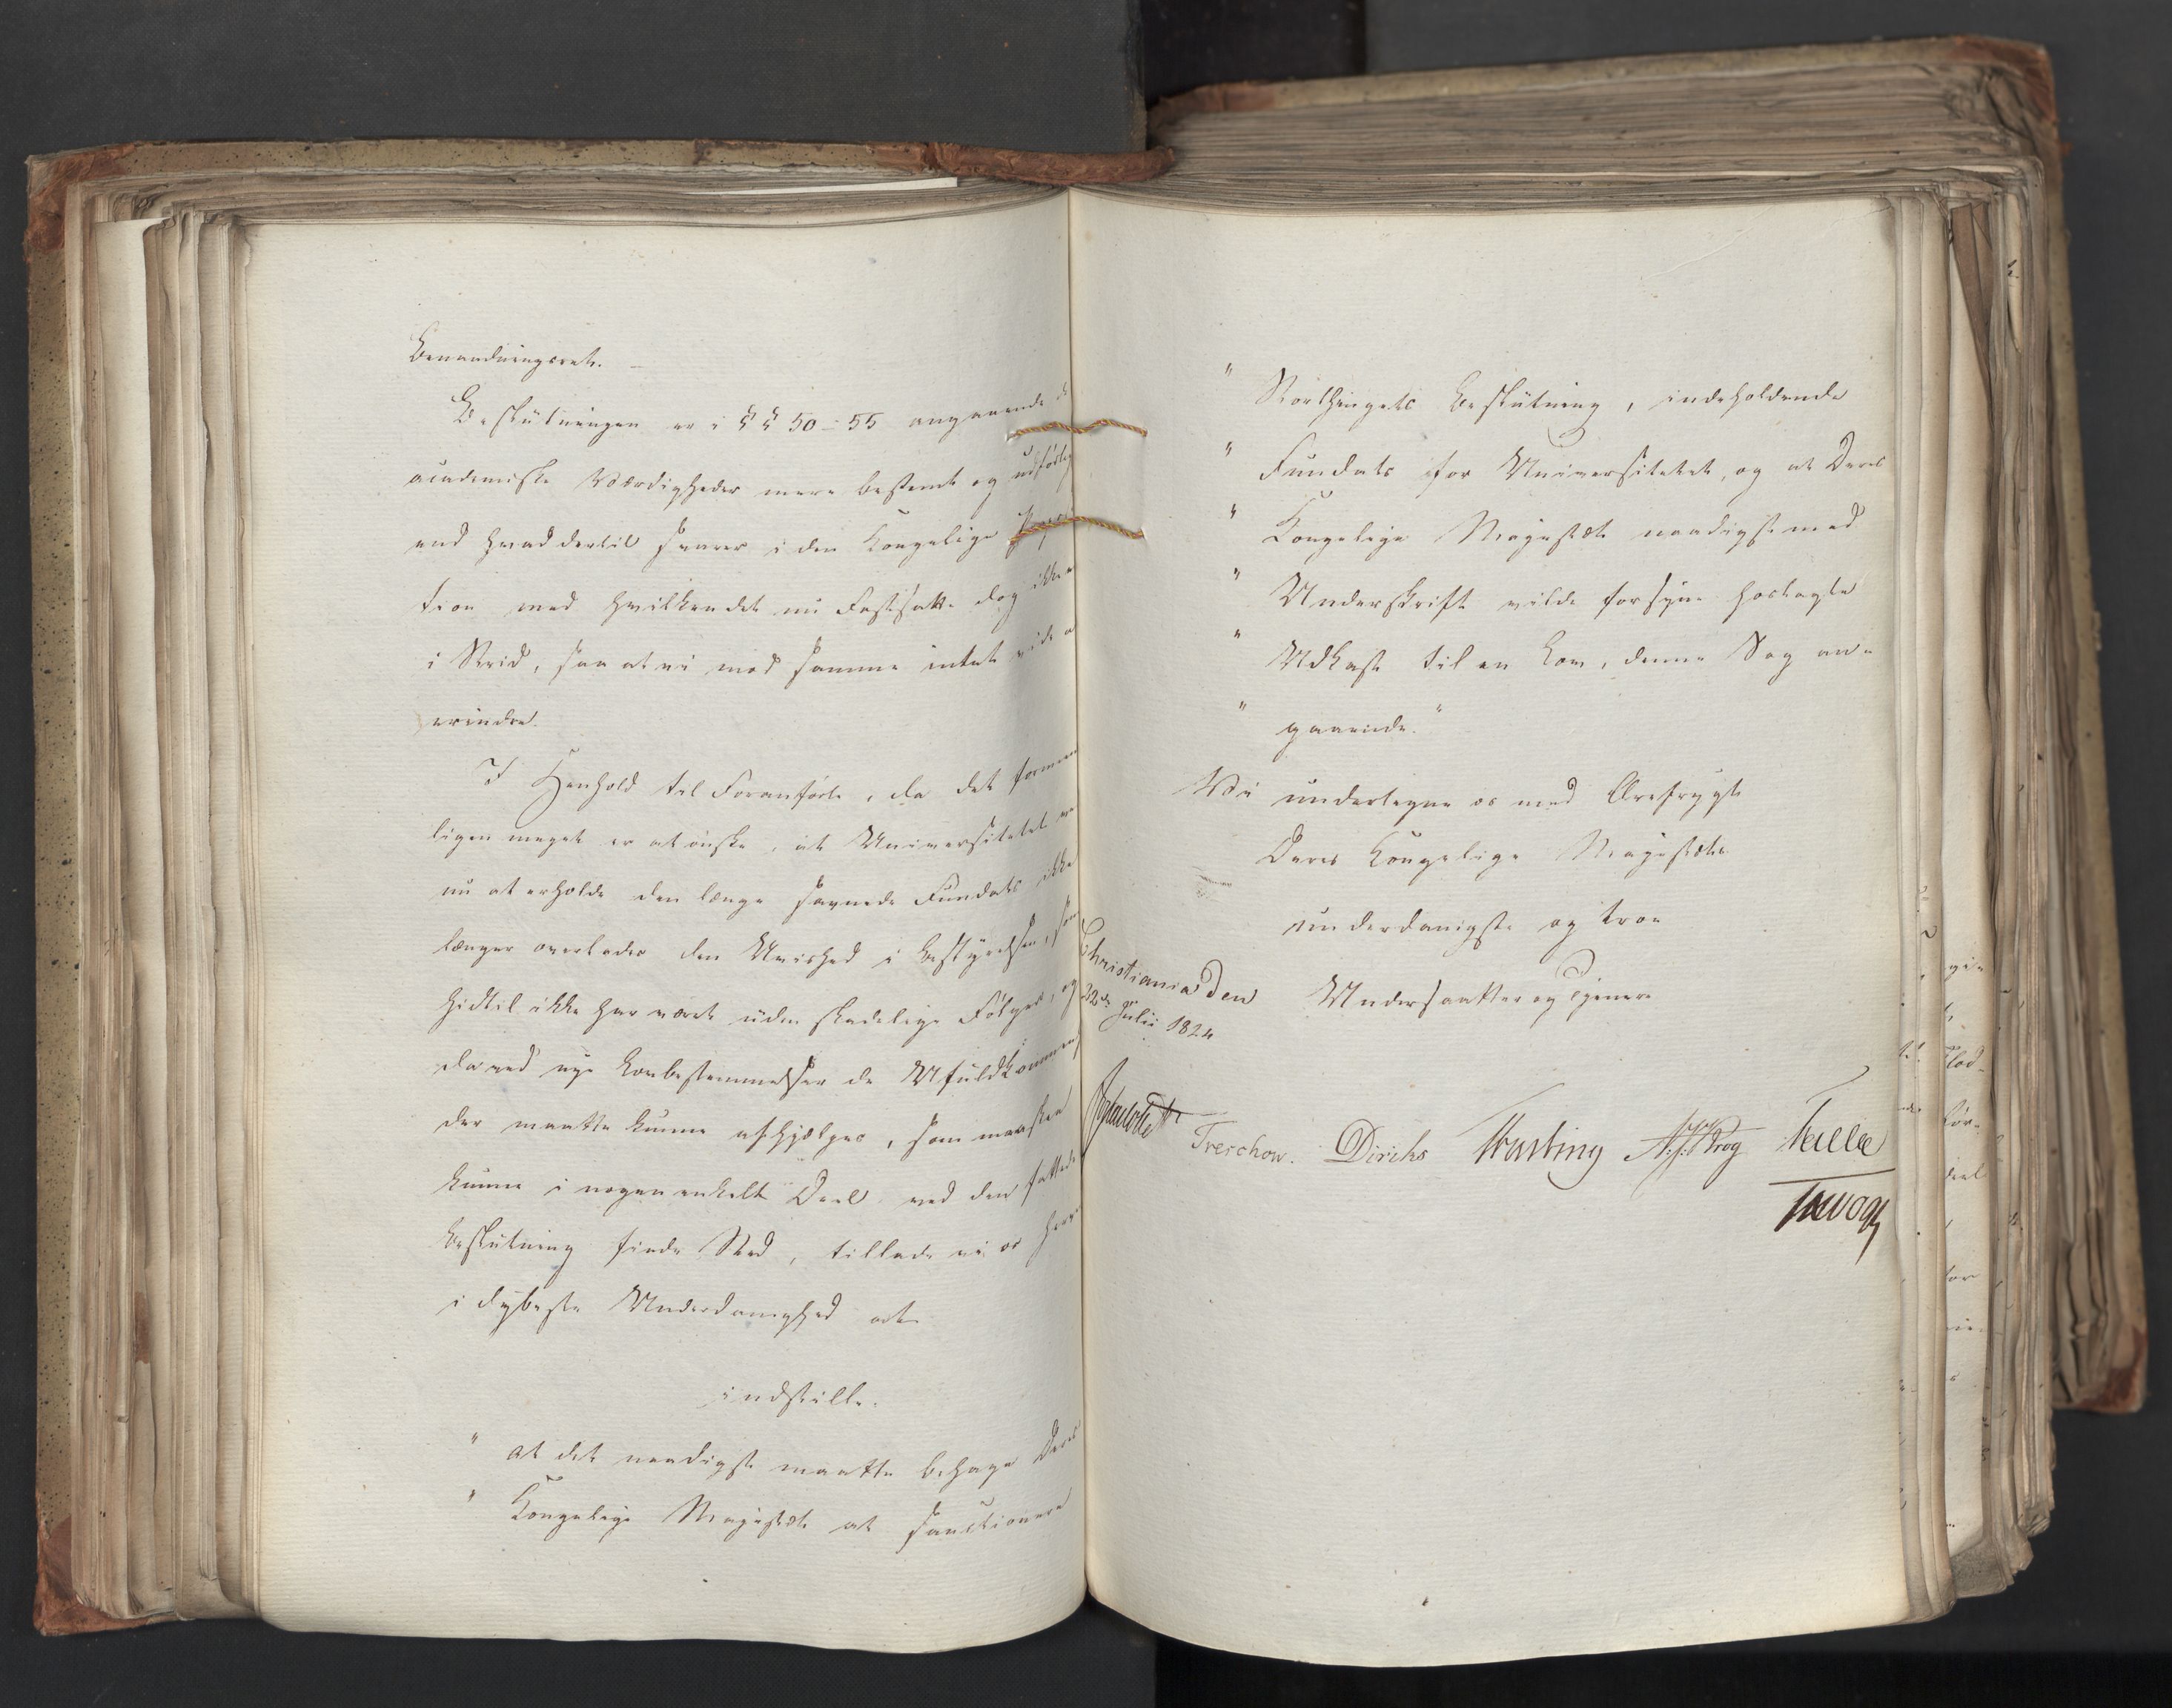 Benaadningsret.
Beslutningen er i §§ 50-55 angaaende
academiske Værdigheder mere bestemt og udførlig
end hvad dertil svarer i den Kongelige
tion med hvilken det nu Fastsatte dog ikke
i Strid, saa at vi mod samme intet vide a
erindre.
I Henhold til Foranførte, da det formeen
ligen meget er at ønske, at Universitetet ve
nu at erholde den længe savnede Fundats ikke
længer overlades den Uvished i Bestyrelsen, som
hidtil ikke har været uden skadelige Følger, og
da ved nye Lovbestemmelser de Ufuldkommen
der maatte kunne afhjælpes, som maaskee
kunne i nogen enkelt Deel ved den fattede
Beslutning finde Sted, tillade vi os her
i dybeste Underdanighed at
indstille:
" at det naadigst maatte behage Deres
" Kongelige Majestæt at sanctionere
" Storthingets Beslutning, indeholdende
" Fundats for Universitetet, og at Deres
" Kongelige Majestæt naadigst med
" Underskrift vilde forsyne hoslagte
" Udkast til en Lov, denne Sag an-
" gaaende."
Vi undertegne os med Ærefrygt
Deres Kongelige Majestæts
underdanigste og troe
Undersaatter og Tjenere
Christiania den
22de Julii 1824
Treschow. Diriks Hasting Krog